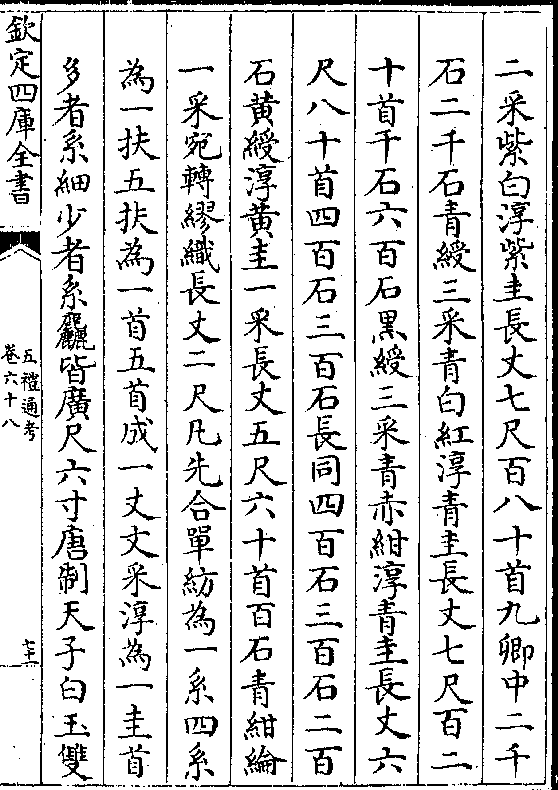 二采紫白淳紫圭長丈七尺百八十首九卿中二千
石二千石青綬三采青白紅淳青圭長丈七尺百二
十首千石六百石黑綬三采青赤紺淳青圭長丈六
尺八十首四百石三百石長同四百石三百石二百
石黃綬淳黃圭一采長丈五尺六十首百石青紺綸
一采宛轉繆織長丈二尺凡先合單紡為一系四系
為一扶五扶為一首五首成一丈丈采淳為一圭首
多者系細少者系麤皆廣尺六寸唐制天子白玉雙
欽定四庫全書
五禮通考
卷六十八